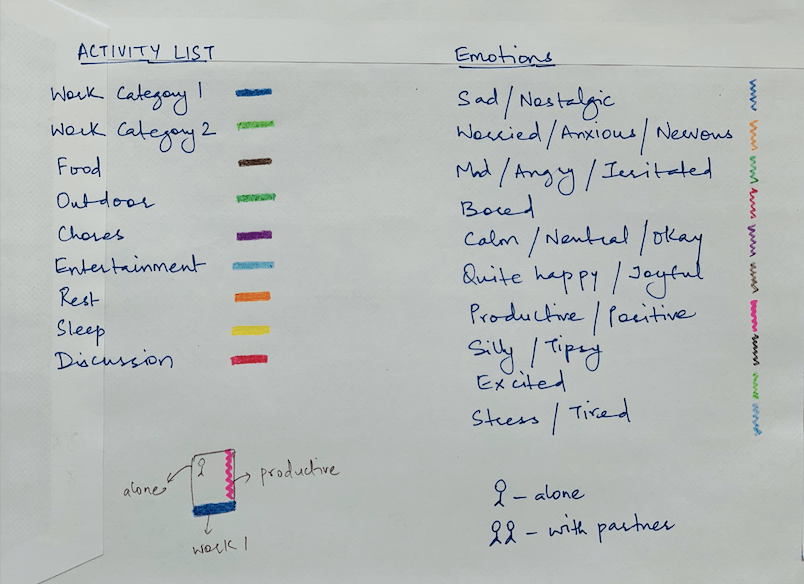 ACTIVITY LIST
Work Category 1
Work Category 2
Food
Outdoor
Chores
Entertainment
Rest
Sleep
Discussion
alone
productive
work 1
Emotions
Sad / Nostalgic
Worried / Anxious / Nervous
Mad / Angry / Irritated
Bored
Calm / Neutral / Okay
Quite happy / Joyful
Productive / Positive
Silly / Tipsy
Excited
Stress / Tired
- alone
- with partner